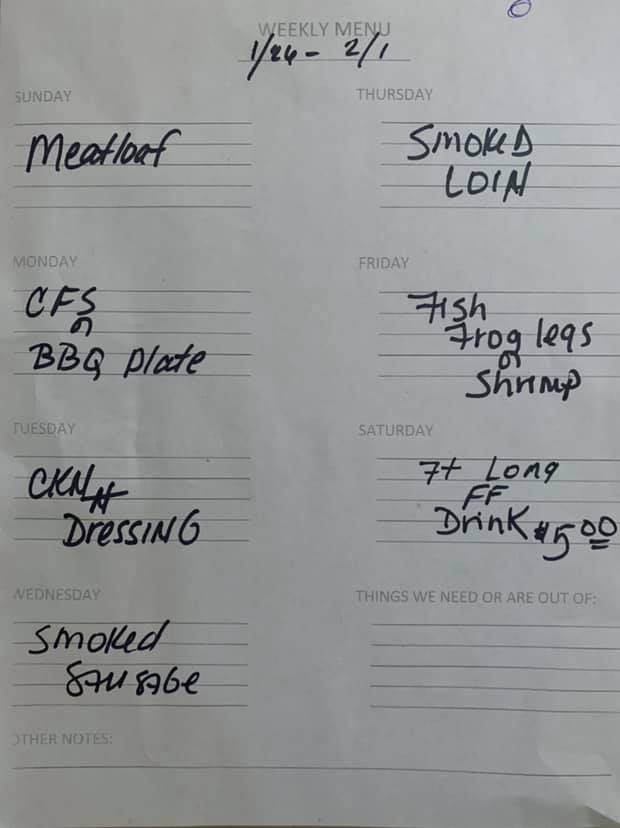 WEEKLY MENU
1/26 - 2/1
SUNDAY
Meatloaf
MONDAY
CFS
or
BBQ Plate
TUESDAY
CKN N
DRESSING
WEDNESDAY
Smoked
SAUSAGE
OTHER NOTES:
THURSDAY
SMOKED
LOIN
FRIDAY
Fish
Frog legs
or
Shrimp
SATURDAY
Ft Long
FF
Drink $5.00
THINGS WE NEED OR ARE OUT OF: